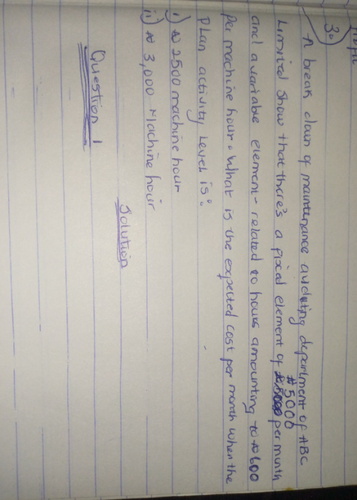 30)
A break down of maintenance auditing department of ABC
Limited show that there's a fixed element of #5000 per month
and a variable element related to hours amounting to
per machine hour. What is the expected cost per month when the
Plan activity level is:
i) 2500 machine hour
ii) 3,000 Machine hour
Solution
Question 1